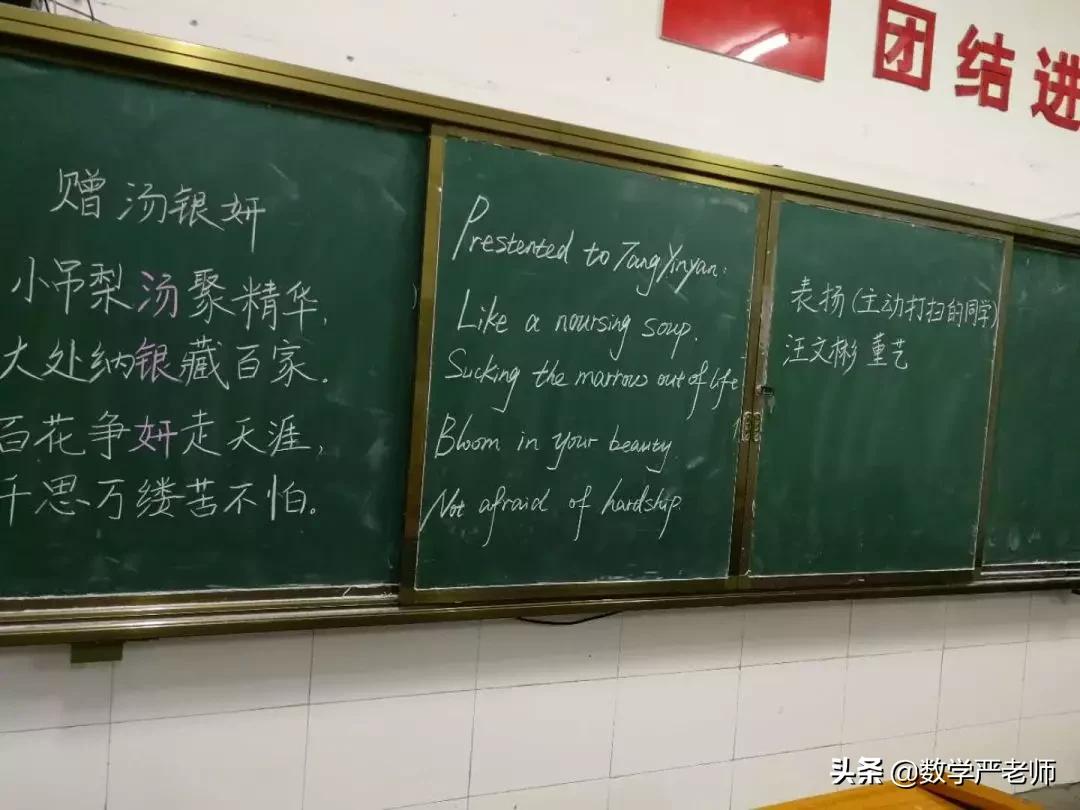 团结进
赠汤银妍
小吊梨汤聚精华,
大处纳银藏百家.
百花争妍走天涯,
千思万缕苦不怕.
Prestented to Tang Yinyan:
Like a noursing soup.
Sucking the marrow out of life
Bloom in your beauty.
Not afraid of hardship.
表扬(主动打扫的同学)
汪文彬 董艺
头条 @数学严老师